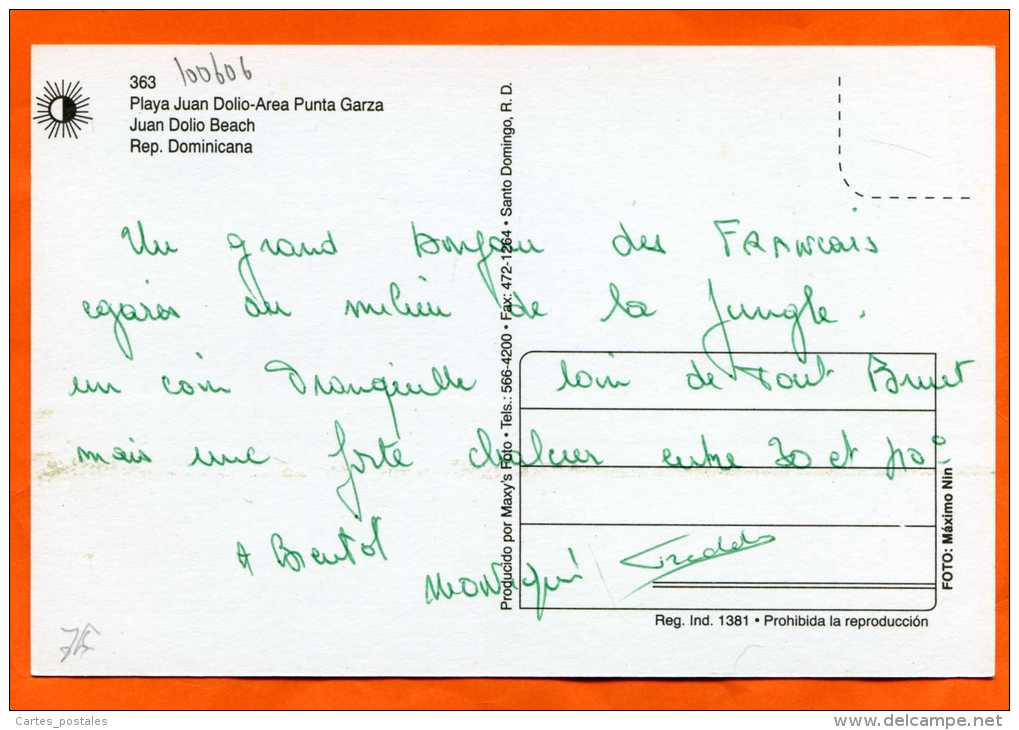 363 100606
Playa Juan Dolio-Area Punta Garza
Juan Dolio Beach
Rep. Dominicana
Un grand Bonjour des FRANcais
egarés au milieu de la jungle.
un coin Tranquille loin de Tout Bruit
mais une forte chaleur entre 30 et 40°
A Bientot
MONique Freddo
Producido por Maxy's Foto • Tels.: 566-4200 • Fax: 472-1264 • Santo Domingo, R. D.
FOTO: Máximo Nin
Reg. Ind. 1381 • Prohibida la reproducción
Cartes_postales
www.delcampe.net